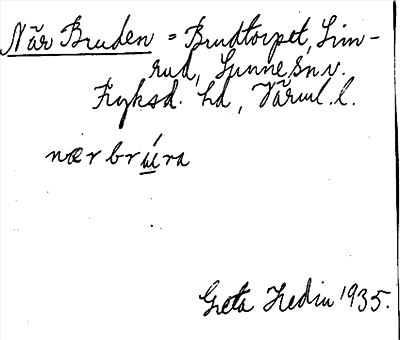 När Bruden = Brudtorpet, Sim-
rud, Sunne sn.v.
Fryksd. hd, Värml. l.
nær brúra
Greta Hedin 1935.